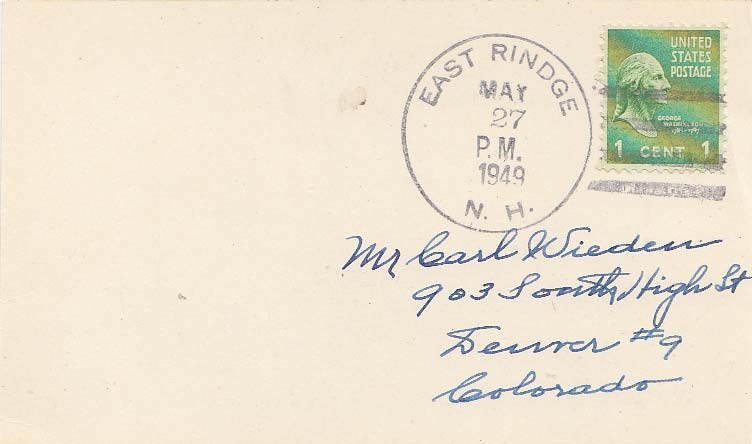 EAST RINDGE
MAY
27
P.M.
1949
N. H.
UNITED
STATES
POSTAGE
GEORGE
WASHINGTON
1789-1797
1 CENT 1
Mr Carl Wieden
903 South High St
Denver #9
Colorado